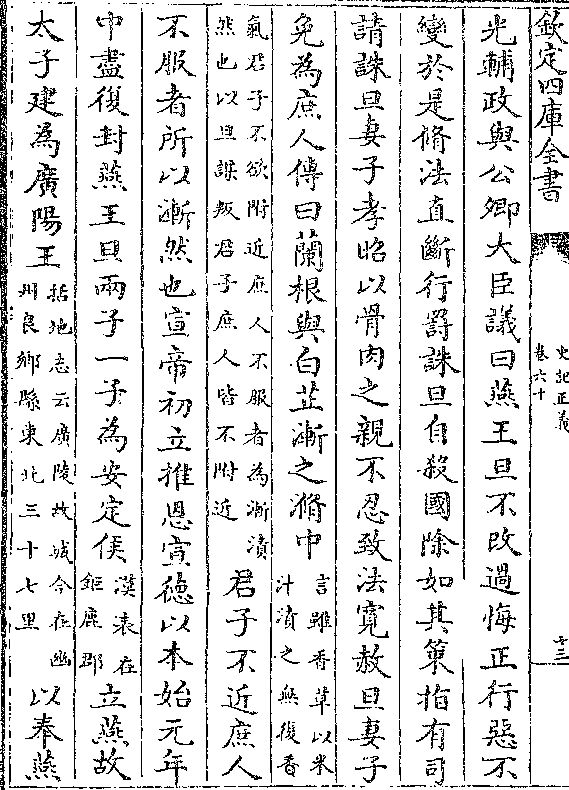 欽定四庫全書
史記正義
卷六十
十三
光輔政與公卿大臣議曰燕王旦不改過悔正行惡不
變於是脩法直斷行罰誅旦自殺國除如其策指有司
請誅旦妻子孝昭以骨肉之親不忍致法寛赦旦妻子
免為庶人傳曰蘭根與白芷漸之滫中
言雖香草以米
汁漬之無復香
氣君子不欲附近庶人不服者為漸漬
然也以旦謀叛君子庶人皆不附近
君子不近庶人
不服者所以漸然也宣帝初立推恩宣徳以本始元年
中盡復封燕王旦兩子一子為安定侯
漢表在
鉅鹿郡
立燕故
太子建為廣陽王
括地志云廣陵故城今在幽
州良鄉縣東北三十七里
以奉燕